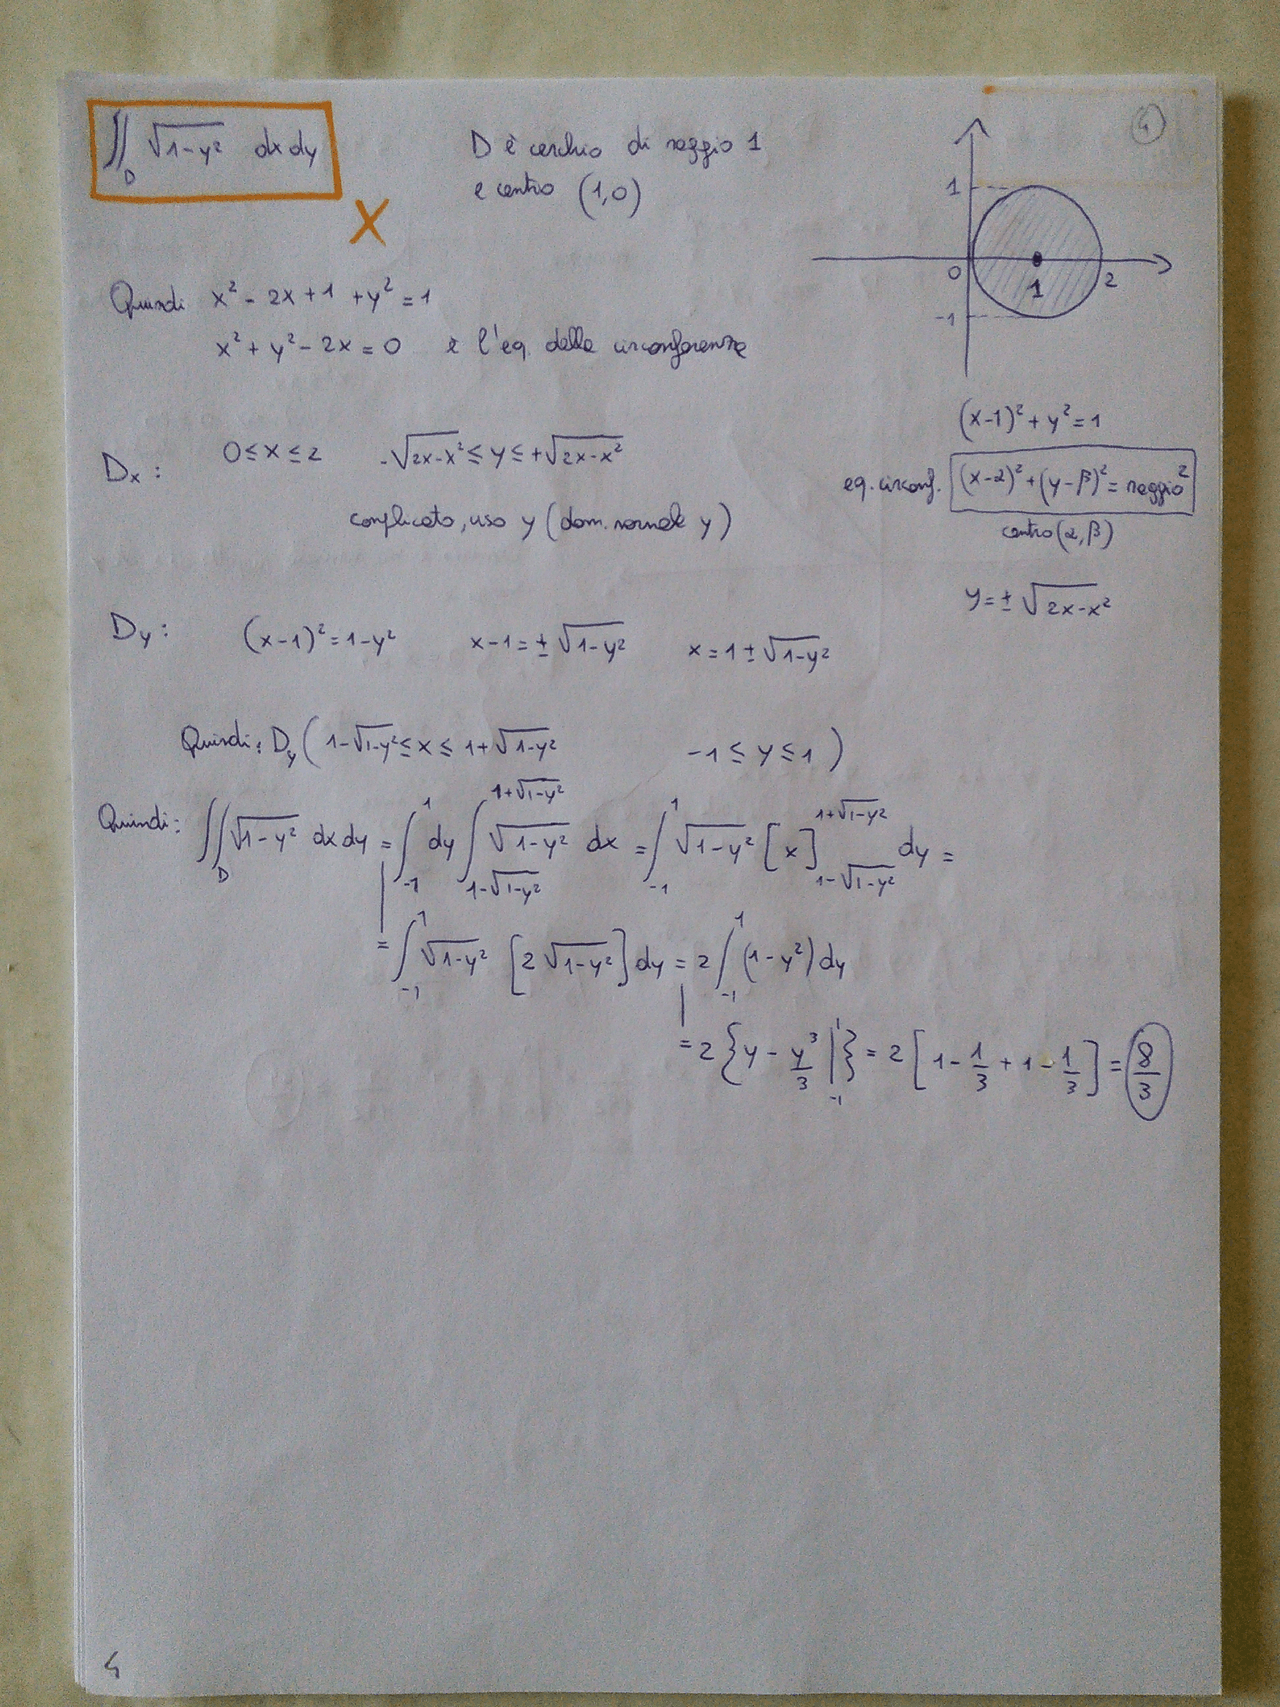 ∬_D √(1-y²) dx dy
D è cerchio di raggio 1
e centro (1,0)
4
1
0
1
2
-1
Quindi x² - 2x + 1 + y² = 1
x² + y² - 2x = 0 è l'eq. della circonferenza
(x-1)² + y² = 1
D_x : 0 ≤ x ≤ 2 -√(2x-x²) ≤ y ≤ +√(2x-x²)
eq. circonf. (x-α)² + (y-β)² = raggio²
complicato, uso y (dom. normale y)
centro (α, β)
y = ± √(2x-x²)
D_y : (x-1)² = 1-y² x-1 = ± √(1-y²) x = 1 ± √(1-y²)
Quindi: D_y ( 1-√(1-y²) ≤ x ≤ 1+√(1-y²) -1 ≤ y ≤ 1 )
Quindi: ∬_D √(1-y²) dx dy = ∫_{-1}^{1} dy ∫_{1-√(1-y²)}^{1+√(1-y²)} √(1-y²) dx = ∫_{-1}^{1} √(1-y²) [x]_{1-√(1-y²)}^{1+√(1-y²)} dy =
= ∫_{-1}^{1} √(1-y²) [2 √(1-y²)] dy = 2 ∫_{-1}^{1} (1-y²) dy
= 2 {y - y³/3 |_{-1}^{1}} = 2 [1 - 1/3 + 1 - 1/3] = 8/3
4